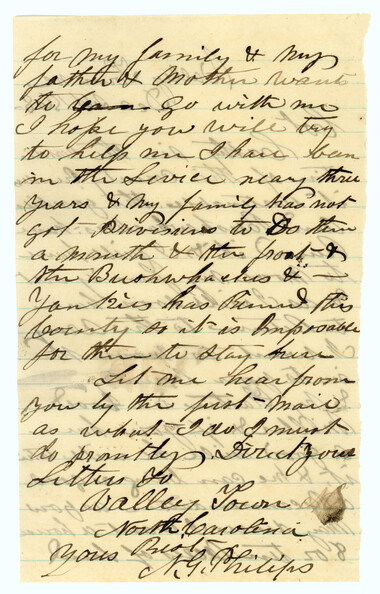 for my family & my
father & Mother want
to go with me
I hope you will try
to help me I have been
in the Sevice neary three
years & my family has not
got Privisins to Do them
a month & the frost &
the Bushwhackes & —
Yankies has Ruined this
County so it is Imposable
for them to stay here
Let me hear from
you by the first Mail
as what I do I must
do promtley. Direct your
Letters To
Valley Town
North Carolina
Yours
N. G. Philips